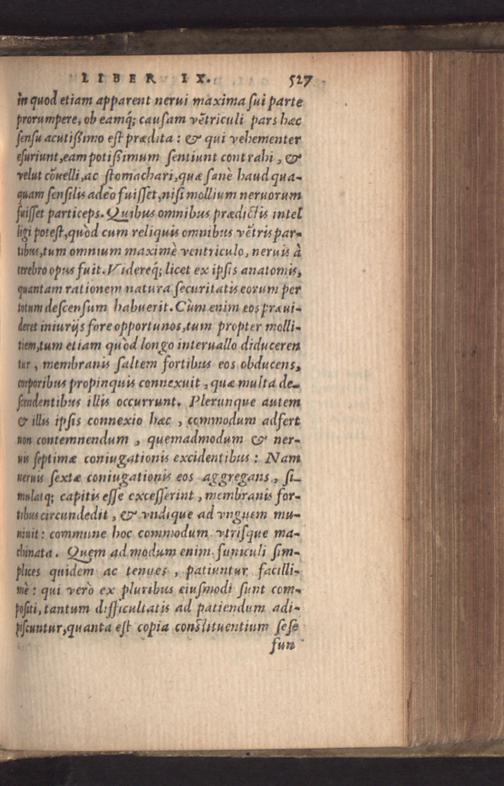 LIBER IX. 527
in quod etiam apparent nerui maxima sui parte
prorumpere, ob eamq; causam vẽtriculi pars hæc
sensu acutißimo est prædita: & qui vehementer
esuriunt, eam potißimum sentiunt contrahi, &
velut cõuelli, ac stomachari, quæ sanè haud qua-
quam sensilis adeò fuisset, nisi mollium neruorum
fuisset particeps. Quibus omnibus prædictis intel
ligi potest, quòd cum reliquis omnibus vẽtris par-
tibus, tum omnium maximè ventriculo, neruis à
cerebro opus fuit. Videreq; licet ex ipsis anatomis,
quantam rationem natura securitatis eorum per
totum descensum habuerit. Cùm enim eos præui-
deret iniurijs fore opportunos, tum propter molli-
tiem, tum etiam quòd longo interuallo diduceren
tur, membranis saltem fortibus eos obducens,
corporibus propinquis connexuit, quæ multa de-
scendentibus illis occurrunt. Plerunque autem
& illis ipsis connexio hæc, commodum adfert
non contemnendum, quemadmodum & ner-
uis septimæ coniugationis excidentibus: Nam
neruis sextæ coniugationis eos aggregans, si-
mulatq; capitis esse excesserint, membranis for-
tibus circundedit, & vndique ad vnguem mu-
niuit: commune hoc commodum vtrisque ma-
chinata. Quem ad modum enim funiculi sim-
plices quidem ac tenues, patiuntur facilli-
mè: qui verò ex pluribus eiusmodi sunt com-
positi, tantum difficultatis ad patiendum adi-
piscuntur, quanta est copia constituentium sese
fun